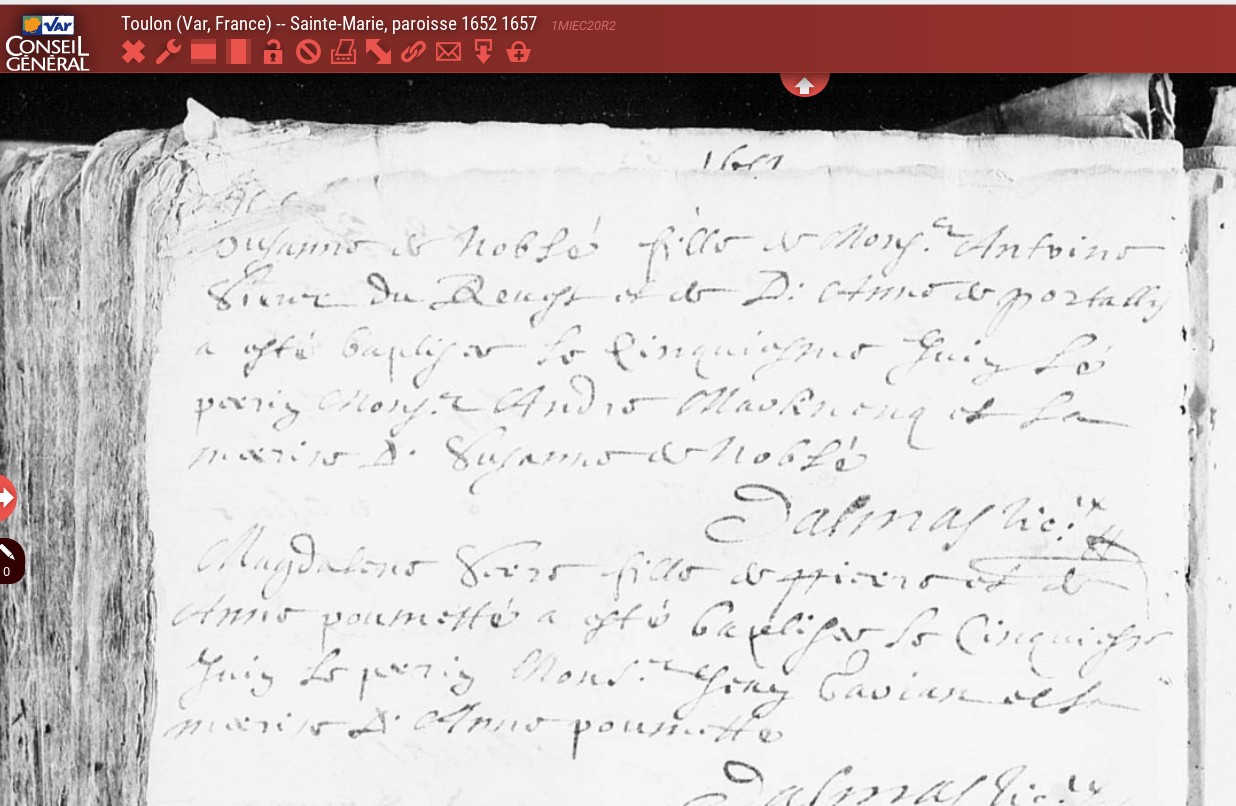 Toulon (Var, France) -- Sainte-Marie, paroisse 1652 1657 1MIEC20R2
VAR
CONSEIL
GÉNÉRAL
0
Susanne de Noblé fille de Monsr Antoine
Sieur du et de D: Anne de portally
a esté baptisée le Cinquiesme Juin le
perrin Monsr André et la
merine D: Susanne de Noblé
Dalmas vic:
Magdalene fille de pierre et de
Anne poumette a esté baptisée le Cinquiesme
Juin le perrin Monsr et la
merine D: Anne poumette
Dalmas vic: